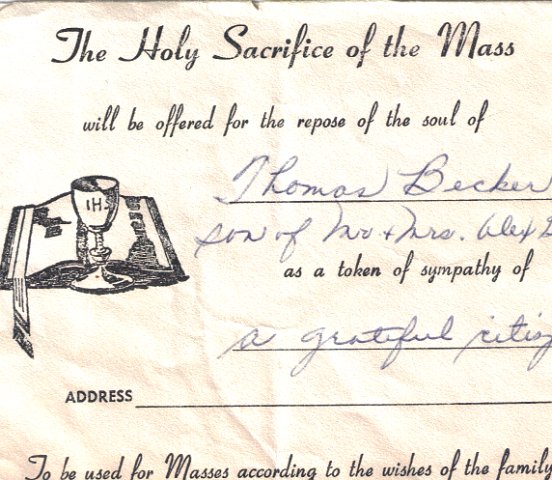 The Holy Sacrifice of the Mass
will be offered for the repose of the soul of
IHS
Thomas Becker
son of Mr & Mrs. Alex
as a token of sympathy of
a grateful
ADDRESS
To be used for Masses according to the wishes of the family